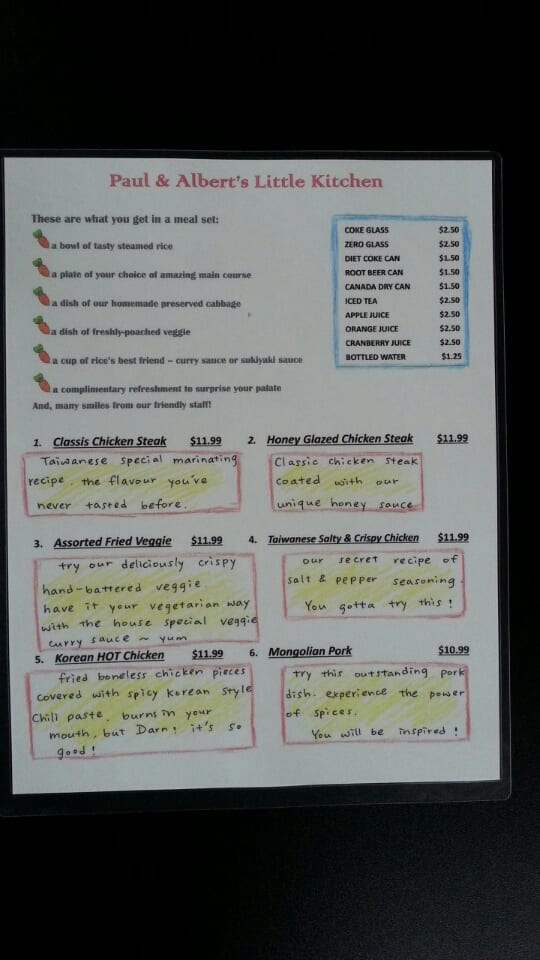 Paul & Albert's Little Kitchen
These are what you get in a meal set:
a bowl of tasty steamed rice
a plate of your choice of amazing main course
a dish of our homemade preserved cabbage
a dish of freshly-poached veggie
a cup of rice's best friend – curry sauce or sukiyaki sauce
a complimentary refreshment to surprise your palate
And, many smiles from our friendly staff!
COKE GLASS $2.50
ZERO GLASS $2.50
DIET COKE CAN $1.50
ROOT BEER CAN $1.50
CANADA DRY CAN $1.50
ICED TEA $2.50
APPLE JUICE $2.50
ORANGE JUICE $2.50
CRANBERRY JUICE $2.50
BOTTLED WATER $1.25
1. Classis Chicken Steak $11.99
Taiwanese special marinating
recipe. the flavour you've
never tasted before.
2. Honey Glazed Chicken Steak $11.99
Classic chicken steak
coated with our
unique honey sauce
3. Assorted Fried Veggie $11.99
try our deliciously crispy
hand-battered veggie.
have it your vegetarian way
with the house special veggie
curry sauce ~ yum
4. Taiwanese Salty & Crispy Chicken $11.99
our secret recipe of
salt & pepper seasoning.
You gotta try this !
5. Korean HOT Chicken $11.99
fried boneless chicken pieces
covered with spicy Korean style
Chili paste. burns in your
mouth, but Darn! it's so
good !
6. Mongolian Pork $10.99
try this outstanding pork
dish. experience the power
of spices.
You will be inspired !